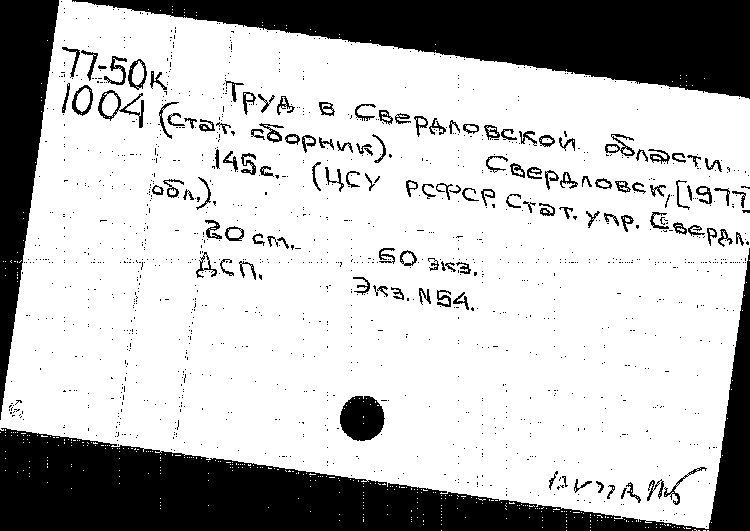 77-50к
1004
Труд в Свердловской области.
(Стат. сборник). Свердловск, [1977].
145с. (ЦСУ РСФСР. Стат. упр. Свердл.
обл.).
20 cm. 60 экз.
ДСП. Экз. N54.